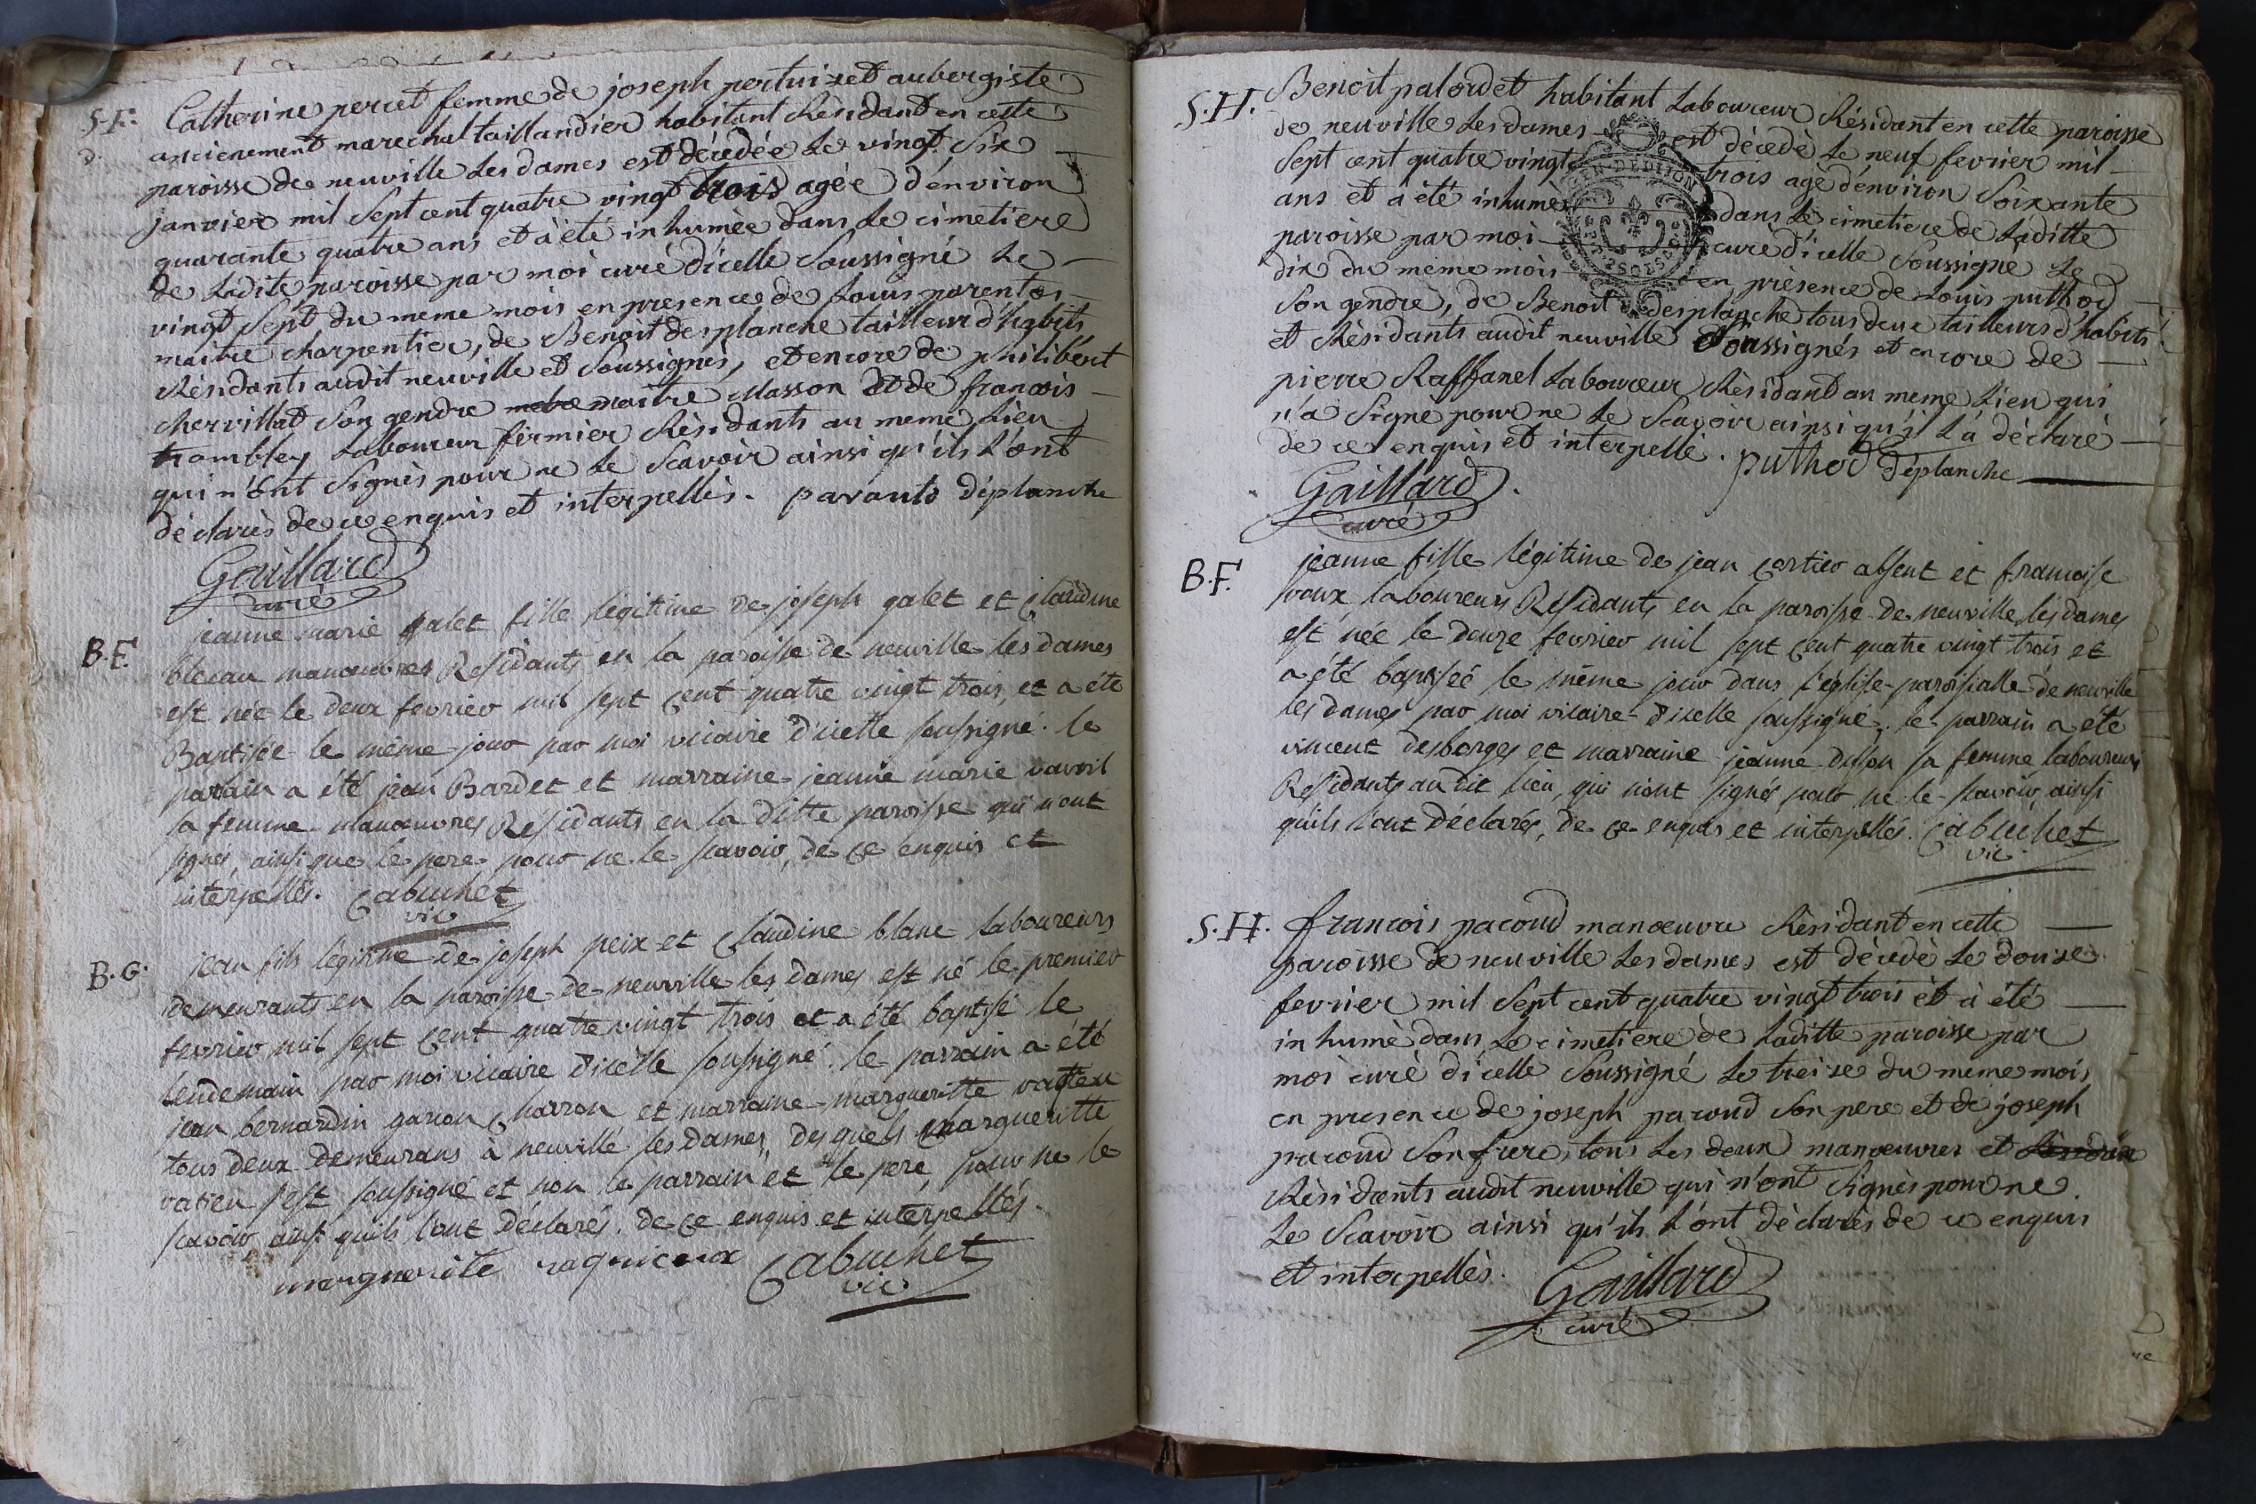 S.F. Catherine percet femme de joseph pertuizet aubergiste
d. anciennement marechal taillandier habitant Résidant en cette
paroisse de neuville Les dames est décédée Le vingt Six
janvier mil Sept cent quatre vingt trois agée d'environ
quarante quatre ans et à été inhumèe dans Le cimetiere
de Ladite paroisse par moi curé d'icelle Soussigné Le
vingt Sept du meme mois en presence de Louis parentos
maitre charpentier, de Benoit desplanche tailleur d'habits
Résidants audit neuville et Soussignés, et encore de philibert
chervillat Son gendre maitre Masson et de francois
trambley Laboureur fermier Résidants au meme Lieu
qui n'ònt Signès pour ne Le Scavoir ainsi qu'ils L'ont
déclarès de ce enquis et interpellès. paranto déplanche
Gaillard
curé
B.F. jeanne marie galet fille légitime de joseph galet et Claudine
blean manoeuvres Résidants en la paroisse de neuville les dames
est née le deux fevrier mil sept cent quatre vingt trois, et a été
Baptisée le même jour par moi vicaire d'icelle soussigné. le
parrain a été jean Bardet et marraine jeanne marie vavril
sa femme manoeuvres Résidants en la ditte paroisse qui n'ont
signés ainsi que le pere pour ne le scavoir, de ce enquis et
interpellés. Cabuchet
vic
B.G. jean fils légitime de joseph peix et Claudine blanc laboureurs
demeurants en la paroisse de neuville les dames est né le premier
fevrier mil sept cent quatre vingt trois et a été baptisé le
lendemain par moi vicaire d'icelle soussigné. le parrain a été
jean bernardin garon Charron et marraine margueritte vatieu
tous deux demeurans à neuville les dames, desquels margueritte
vatieu s'est soussigné et non le parrain et le pere, pour ne le
scavoir ainsi quils l'ont déclarés. de ce enquis et interpellés.
marguerite Cabuchet
vic
S.H. Benoit palordet habitant Laboureur Résidant en cette paroisse
de neuville Les dames est décedè Le neuf fevrier mil
Sept cent quatre vingt trois age d'environ Soixante
ans et à été inhumé dans Le cimetiere de Laditte
paroisse par moi curè d'icelle Soussigné Le
dix du meme mois en prèsence de Louis puthod
Son gendre, de Benoit desplanche tous deux tailleurs d'habits
et Résidants audit neuville Soussignés et encore de
pierre Raffanel Laboureur Rèsidant au meme Lieu qui
n'a Signè pour ne Le Scavoir ainsi qu'il L'à déclaré
de ce enquis et interpellé. puthod déplanche
Gaillard
curé
B.F. jeanne fille légitime de jean cortier absent et francoise
vaux laboureurs Résidants en la paroisse de neuville les dames
est née le douze fevrier mil sept cent quatre vingt trois et
a été baptiséé le même jour dans l'église paroissialle de neuville
les dames par moi vicaire d'icelle soussigné, le parrain a été
vincent desborges et marraine jeanne dulon sa femme laboureurs
Résidants au dit lieu, qui n'ont signés pour ne le scavoir, ainsi
quils l'ont déclarés, de ce enquis et interpellés. Cabuchet
vic
S.H. francois pacoud manoeuvre Résidant en cette
paroisse de neuville Les dames est décedè Le douze
fevrier mil Sept cent quatre vingt trois èt à été
inhumè dans Le cimetiere de Laditte paroisse par
moi curè d'icelle Soussigné Le treize du meme mois
en presence de joseph pacoud Son pere et de joseph
pacoud Son frere, tous Les deux manoeuvres et
Rèsidants audit neuville qui n'ont Signès pour ne
Le Scavoir ainsi qu'ils L'ont déclarès de ce enquis
et interpellès. Gaillard
curé